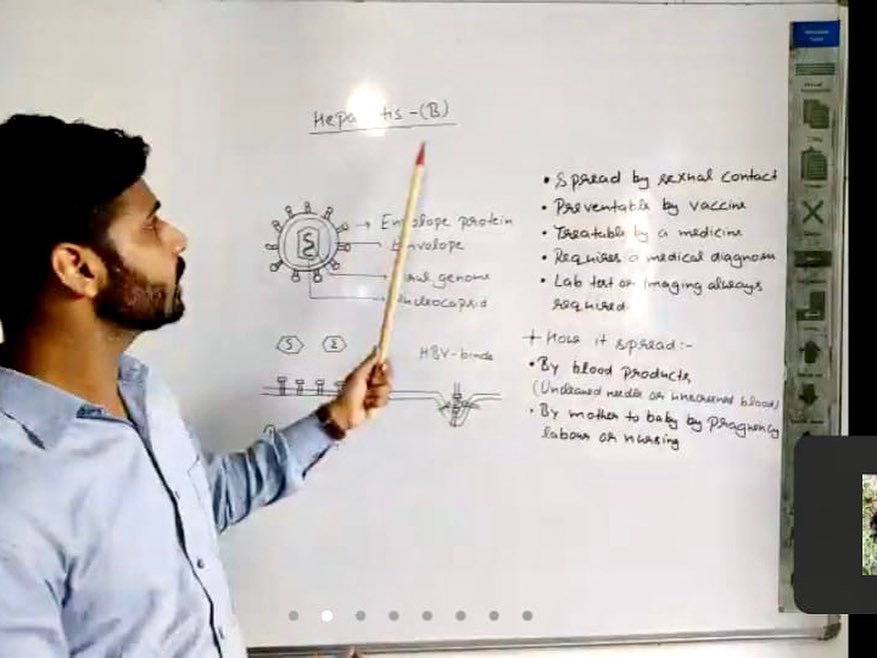 Hepa tis -(B)
Envelope protein
Envelope
genome
Nucleocapsid
HBV-binds
• Spread by sexual contact
• Preventable by vaccine
• Treatable by a medicine
• Requires a medical diagnosis
• Lab test or imaging always
required.
+ How it spread:-
• By blood products
(Uncleaned needle or unscreened blood)
• By mother to baby by Pragnency
labour or nursing